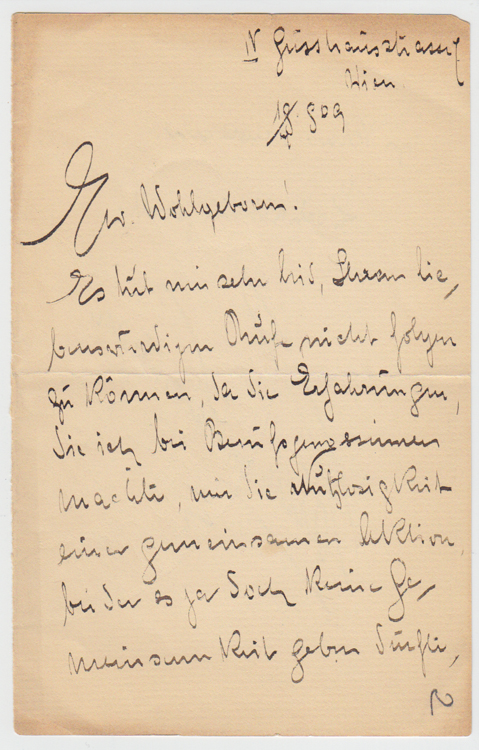 IV Gusshausstrasse
Wien.
Ew. Wohlgeboren!
Es tut mir sehr leid, Ihrem lie-
benswürdigen Rufe nicht folgen
zu können, da die Erfahrungen,
die ich bei Berufsgenossinnen
machte, mir die Nutzlosigkeit
einer gemeinsamen Aktion,
bei der es ja doch keine Ge-
meinsamkeit geben dürfte,